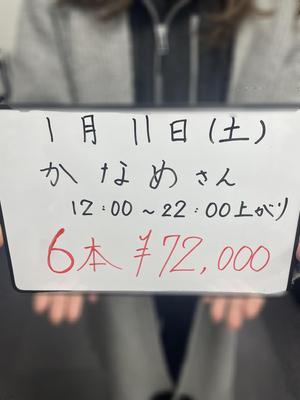 1月11日(土)
かなめさん
12:00~22:00上がり
6本 ¥72,000